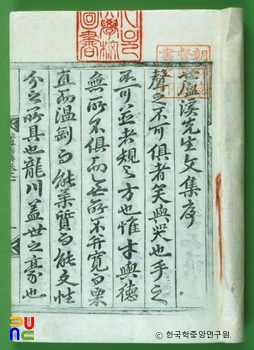 蘆溪先生文集序
聲之不可俱者笑與哭也手之
不可並者規之方也惟才與德
無所不俱而亡所不并寬而栗
直而温剛而能柔質而能文性
分之所具也龍川蓋世之豪也
學校
圖書
한국학중앙연구원